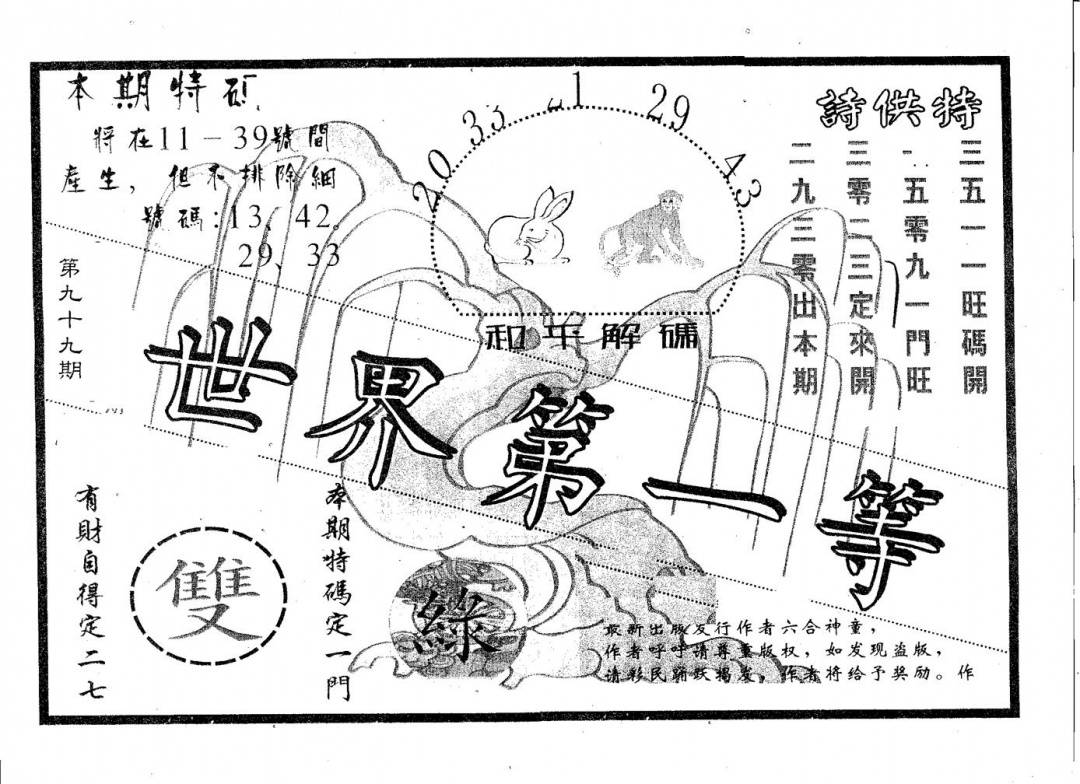 本期特砿
將在11－39號間
產生，但不排除細
號碼：13、42、
29、33
第九十九期
20
33
1
29
43
和平解碼
特供詩
三五一一旺碼開
五零九一門旺
三零二三定來開
二九三零出本期
世界第一等
有財自得定二七
雙
本期特碼定一門
綠
最新出版发行作者六合神童，
作者呼呼请尊重版权，如发现盗版，
请彩民踊跃揭发，作者将给予奖励。作